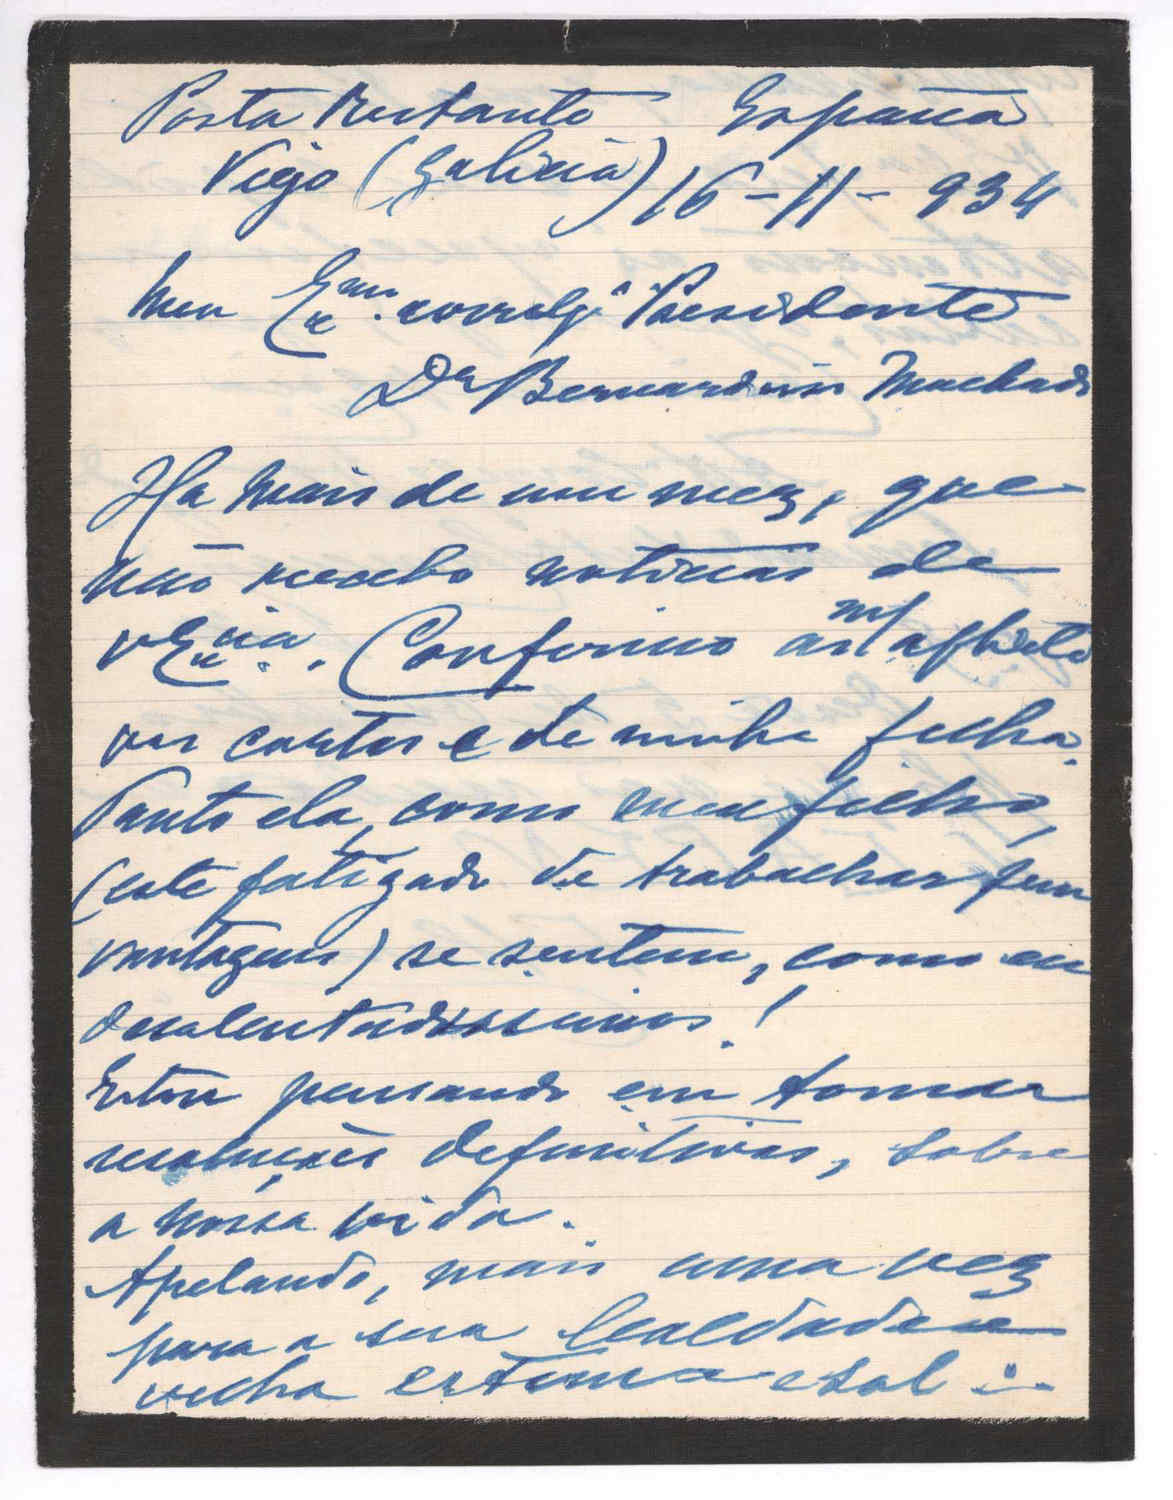 Posta Restante España
Vigo (Galicia) 16-11-934
Meu Exmo. correlgº Presidente
Dr Bernardino Machado
Ha mais de um mez, que
não recebo noticias de
vExcia. Confirmo as mª aflicta
cartas e de minha filha.
Tanto ela, como meu filho,
(este fatigado de trabalhar sem
vantagem) se sentem, como eu
desalentadissimos!
Estou pensando em tomar
resoluções definitivas, sobre
a nossa vida.
Apelando, mais uma vez
para a sua lealdade e
velha estima